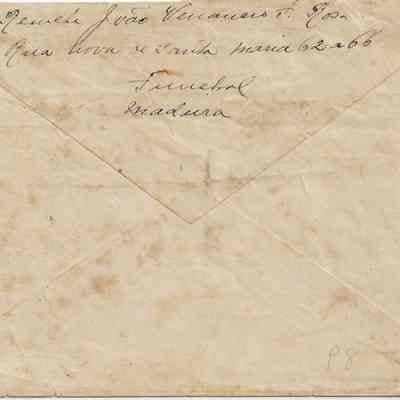 Remete João Venancio F. Rosa
Rua nova de Santa Maria 62 a 66
Funchal
Madeira
P8